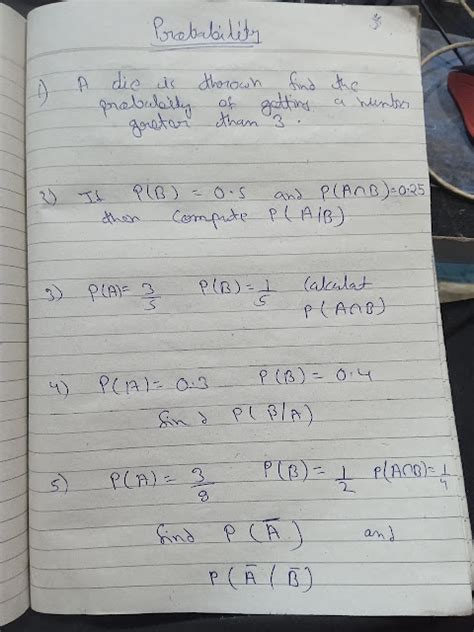 Probability
1) A die is thrown find the
probability of getting a number
greater than 3.
2) If P(B) = 0.5 and P(A∩B)=0.25
then compute P(A/B)
3) P(A)= 3/5 P(B)= 1/5 Calculat
P(A∩B)
4) P(A)= 0.3 P(B)= 0.4
find P(B/A)
5) P(A)= 3/8 P(B)= 1/2 P(A∩B)= 1/4
find P(Ā) and
P(Ā/B̄)